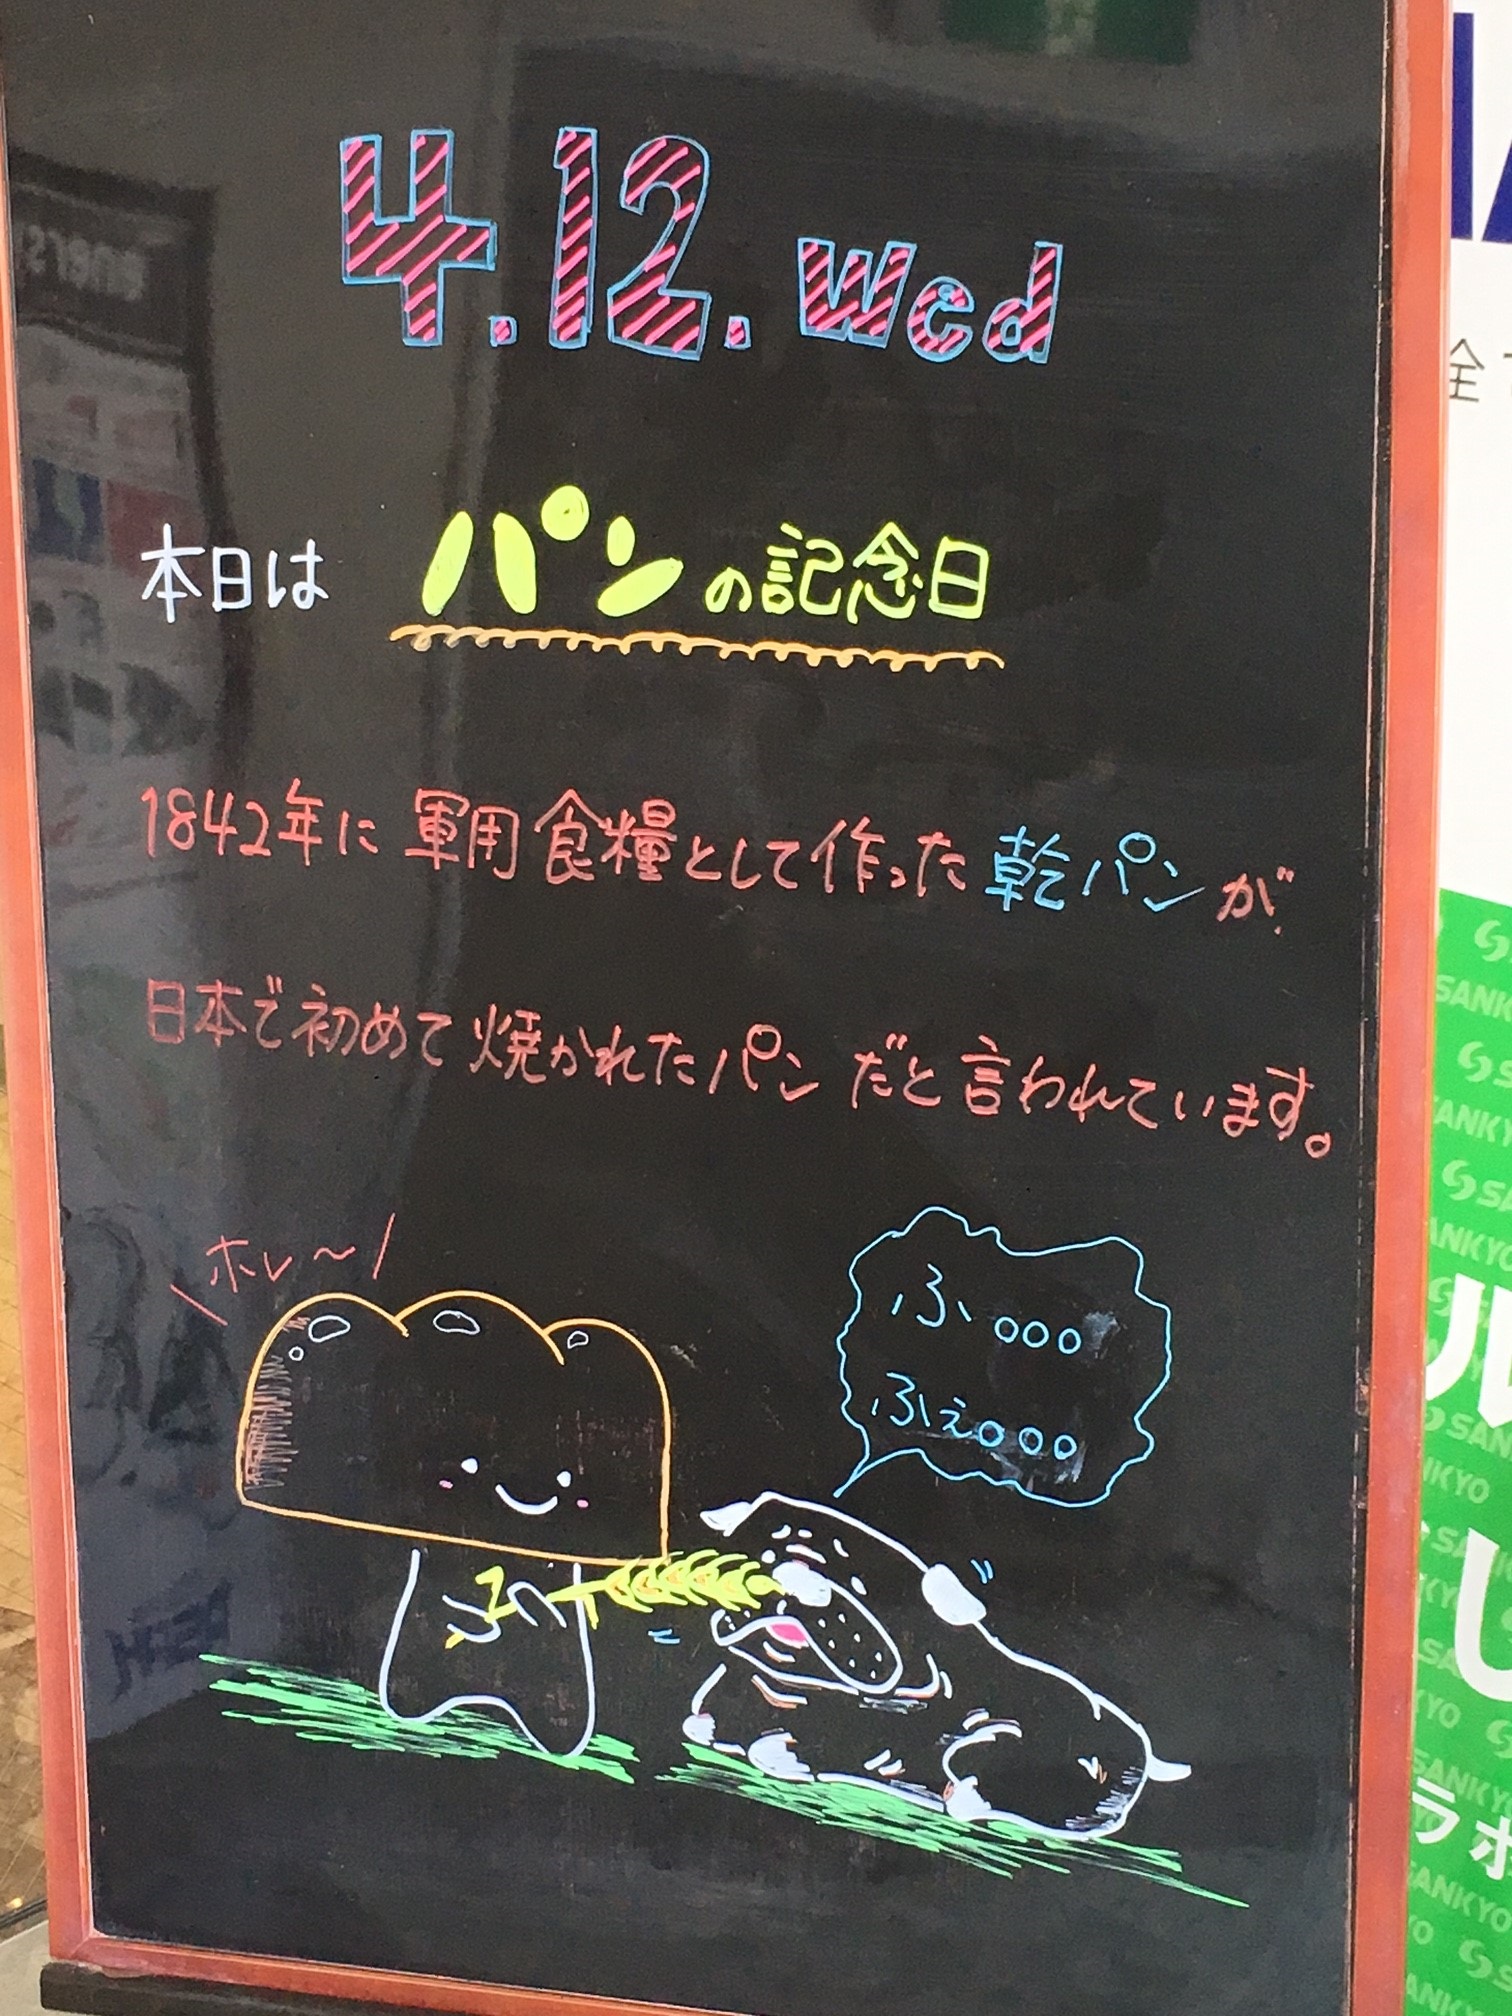 4.12.wed
本日は パンの記念日
1842年に軍用食糧として作った乾パンが
日本で初めて焼かれたパンだと言われています。
ホレ〜
ふ、ooo
ふぇooo
全
SANKYO
SANKYO
SANKYO
SANKYO
ル
し
ラオ